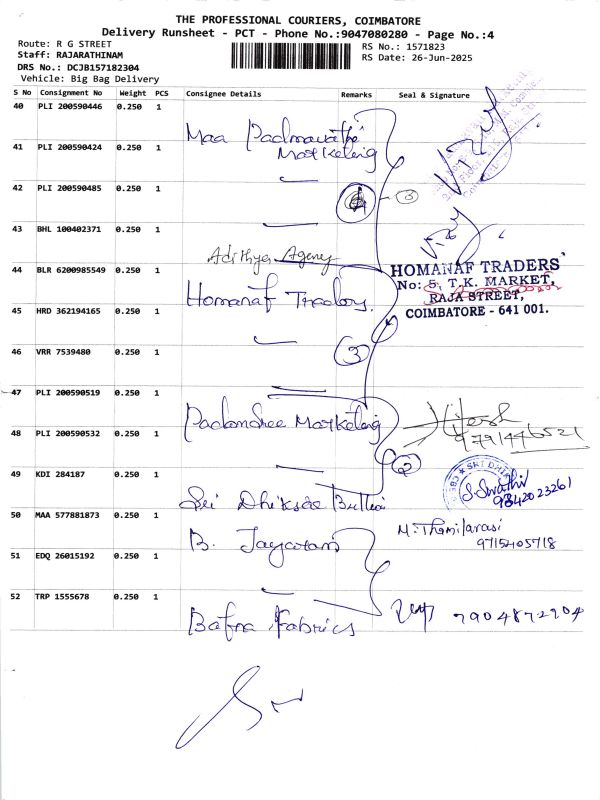 THE PROFESSIONAL COURIERS, COIMBATORE
Delivery Runsheet - PCT - Phone No.:9047080280 - Page No.:4
Route: R G STREET
RS No.: 1571823
Staff: RAJARATHINAM
RS Date: 26-Jun-2025
DRS No.: DCJB157182304
Vehicle: Big Bag Delivery
S No Consignment No Weight PCS Consignee Details Remarks Seal & Signature
40 PLI 200590446 0.250 1
Maa Padmavathi
Marketing
41 PLI 200590424 0.250 1
42 PLI 200590485 0.250 1
43 BHL 100402371 0.250 1
Adithya Agency
44 BLR 6200985549 0.250 1
Homanaf Traders.
HOMANAF TRADERS
No: 5, T.K. MARKET,
RAJA STREET,
COIMBATORE - 641 001.
45 HRD 362194165 0.250 1
46 VRR 7539480 0.250 1
3
47 PLI 200590519 0.250 1
Padamshee Marketing
Hitesh
48 PLI 200590532 0.250 1
2
49 KDI 284187 0.250 1
SRI DHI
S. Swathi
9842023261
Sri Dhiksha Bullion
50 MAA 577881873 0.250 1
M. Thamilarasi
9715405718
B. Jayaram
51 EDQ 26015192 0.250 1
52 TRP 1555678 0.250 1
7904872904
Bafna Fabrics